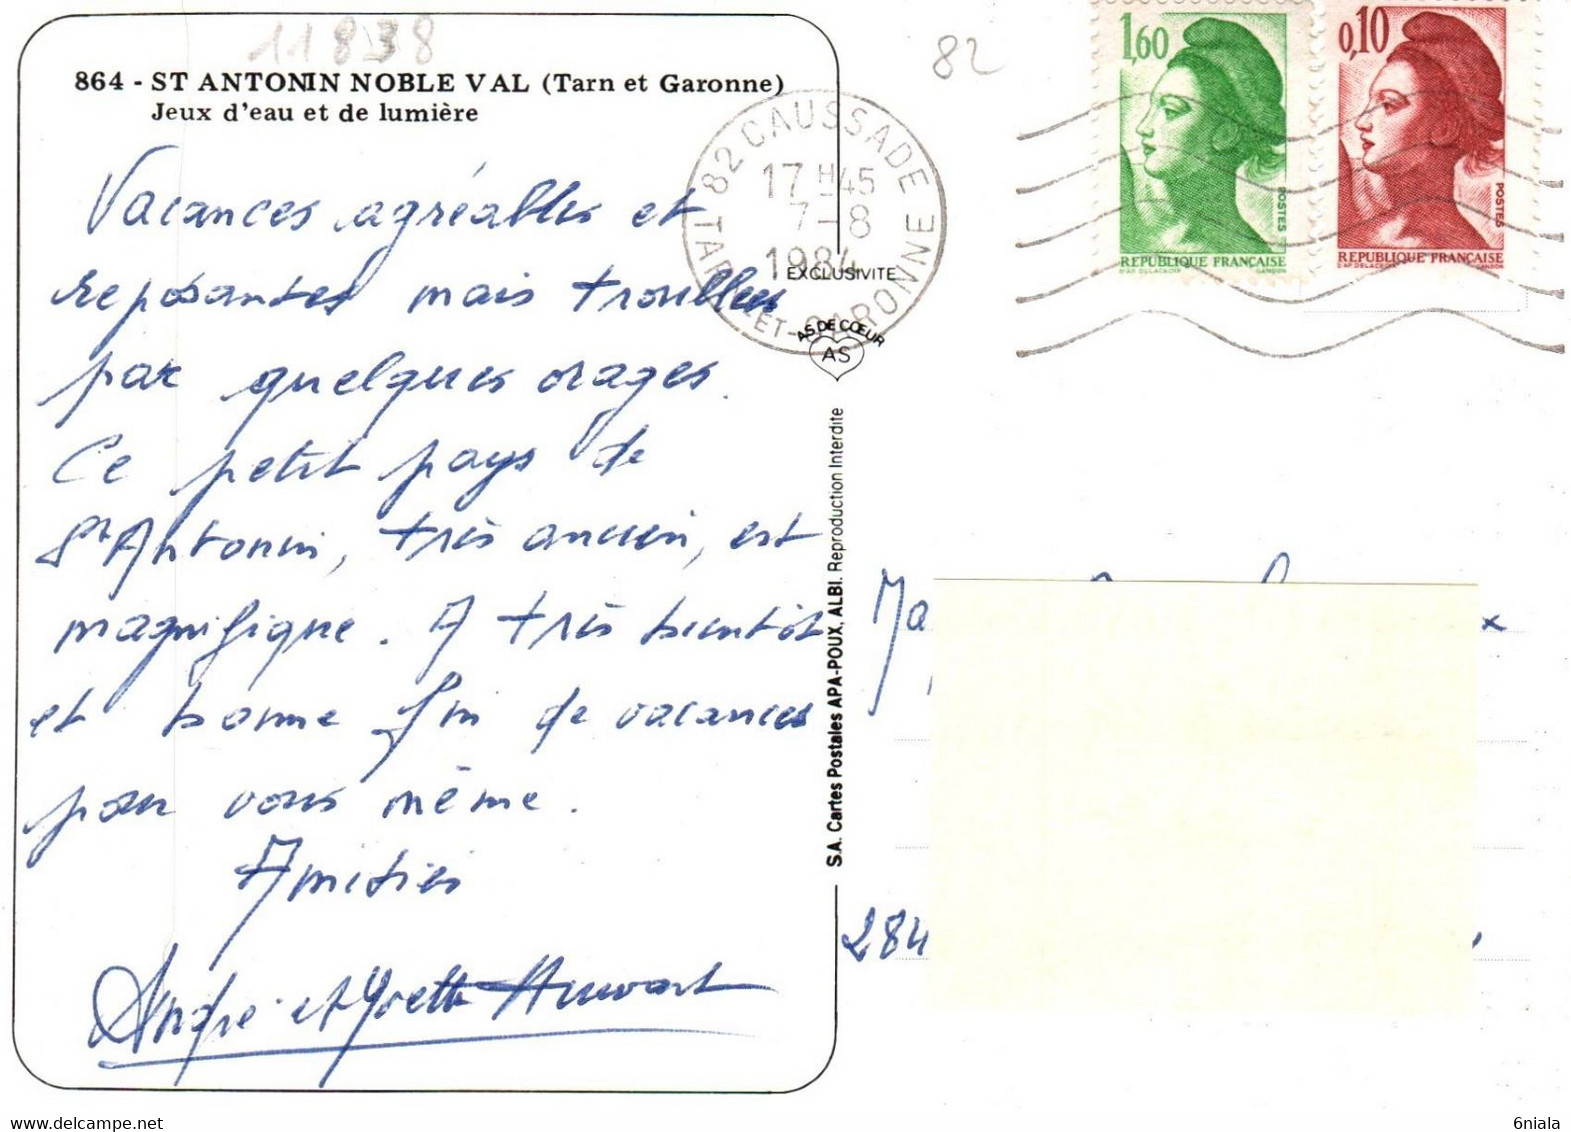 11838
864 - ST ANTONIN NOBLE VAL (Tarn et Garonne)
Jeux d'eau et de lumière
Vacances agréables et
reposantes mais troublées
par quelques orages.
Ce petit pays de
St Antonin, très ancien, est
magnifique. A très bientôt
et bonne fin de vacances
pour vous même.
Amitiés
André et Yvette
82 CAUSSADE
17 H 45
7-8
1984
TARN-ET-GARONNE
EXCLUSIVITE
AS DE CŒUR
AS
S.A. Cartes Postales APA-POUX, ALBI. Reproduction Interdite
82
1,60
POSTES
REPUBLIQUE FRANÇAISE
D'AP. DELACROIX GANDON
0,10
POSTES
REPUBLIQUE FRANÇAISE
D'AP. DELACROIX GANDON
284
delcampe.net
6niala